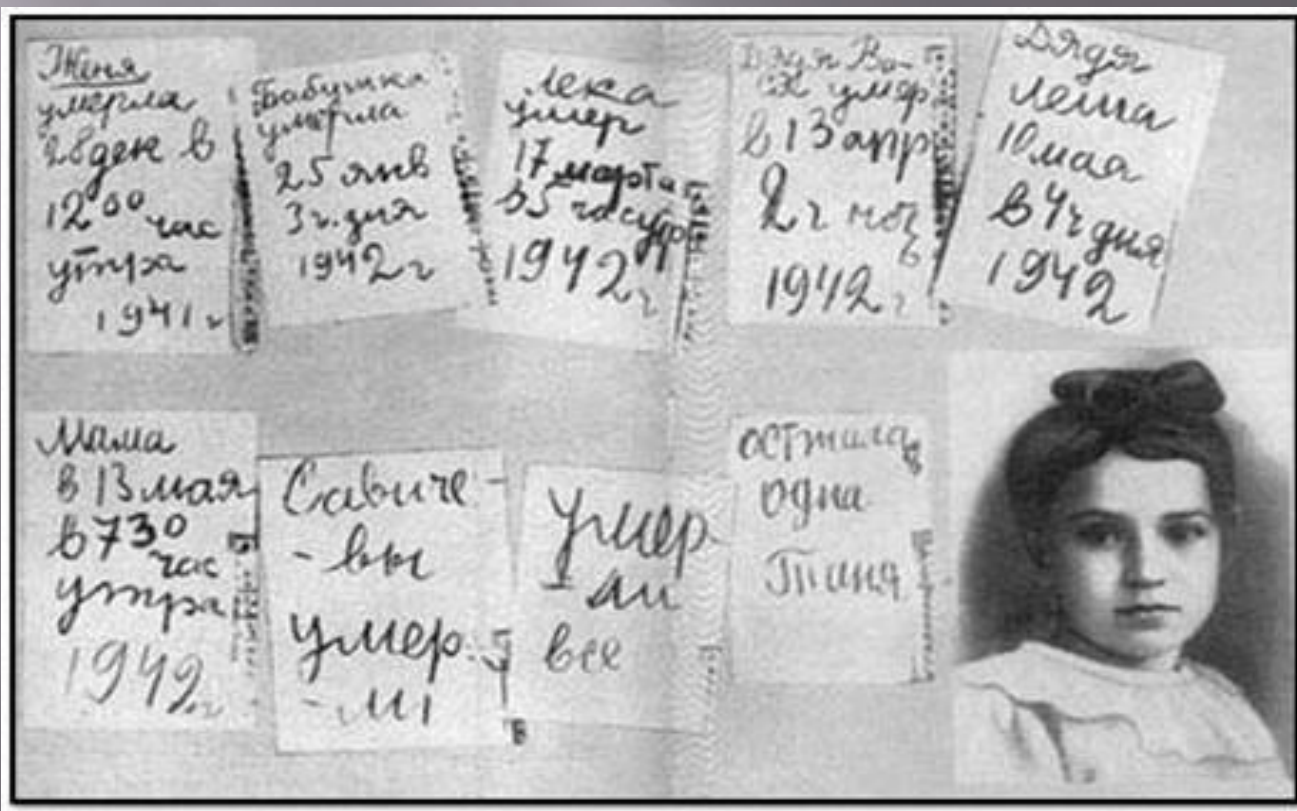 Женя
умерла
28 ден в
12 00 час
утра
1941 г
Бабушка
умерла
25 янв
3 ч. дня
1942 г
Лека
умер
17 марта
в 5 час утр
1942 г
Дядя Ва-
ся умер
в 13 апр
2 ч ноч
1942 г
Дядя
Леша
10 мая
в 4 ч дня
1942
Мама
в 13 мая
в 7 30
час
утра
1942 г
Савиче-
-вы
умер
-ли
Умер
-ли
все
осталась
одна
Таня